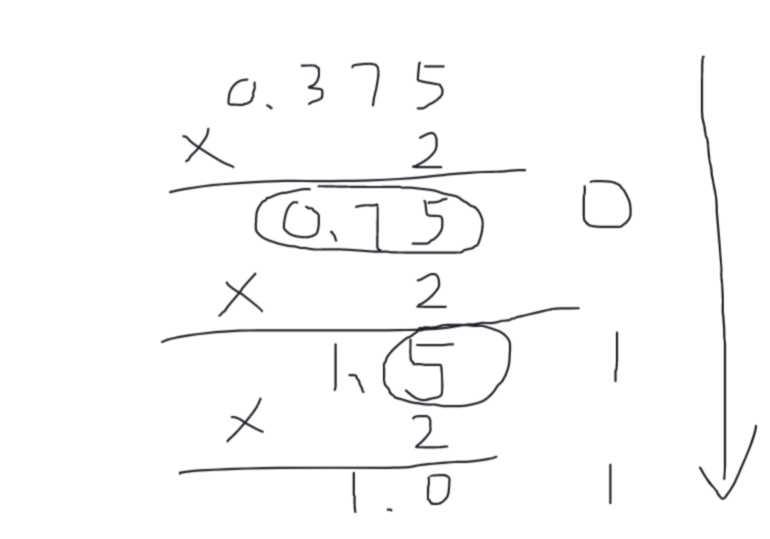 0.375
× 2
0.75 0
× 2
1.5 1
× 2
1.0 1